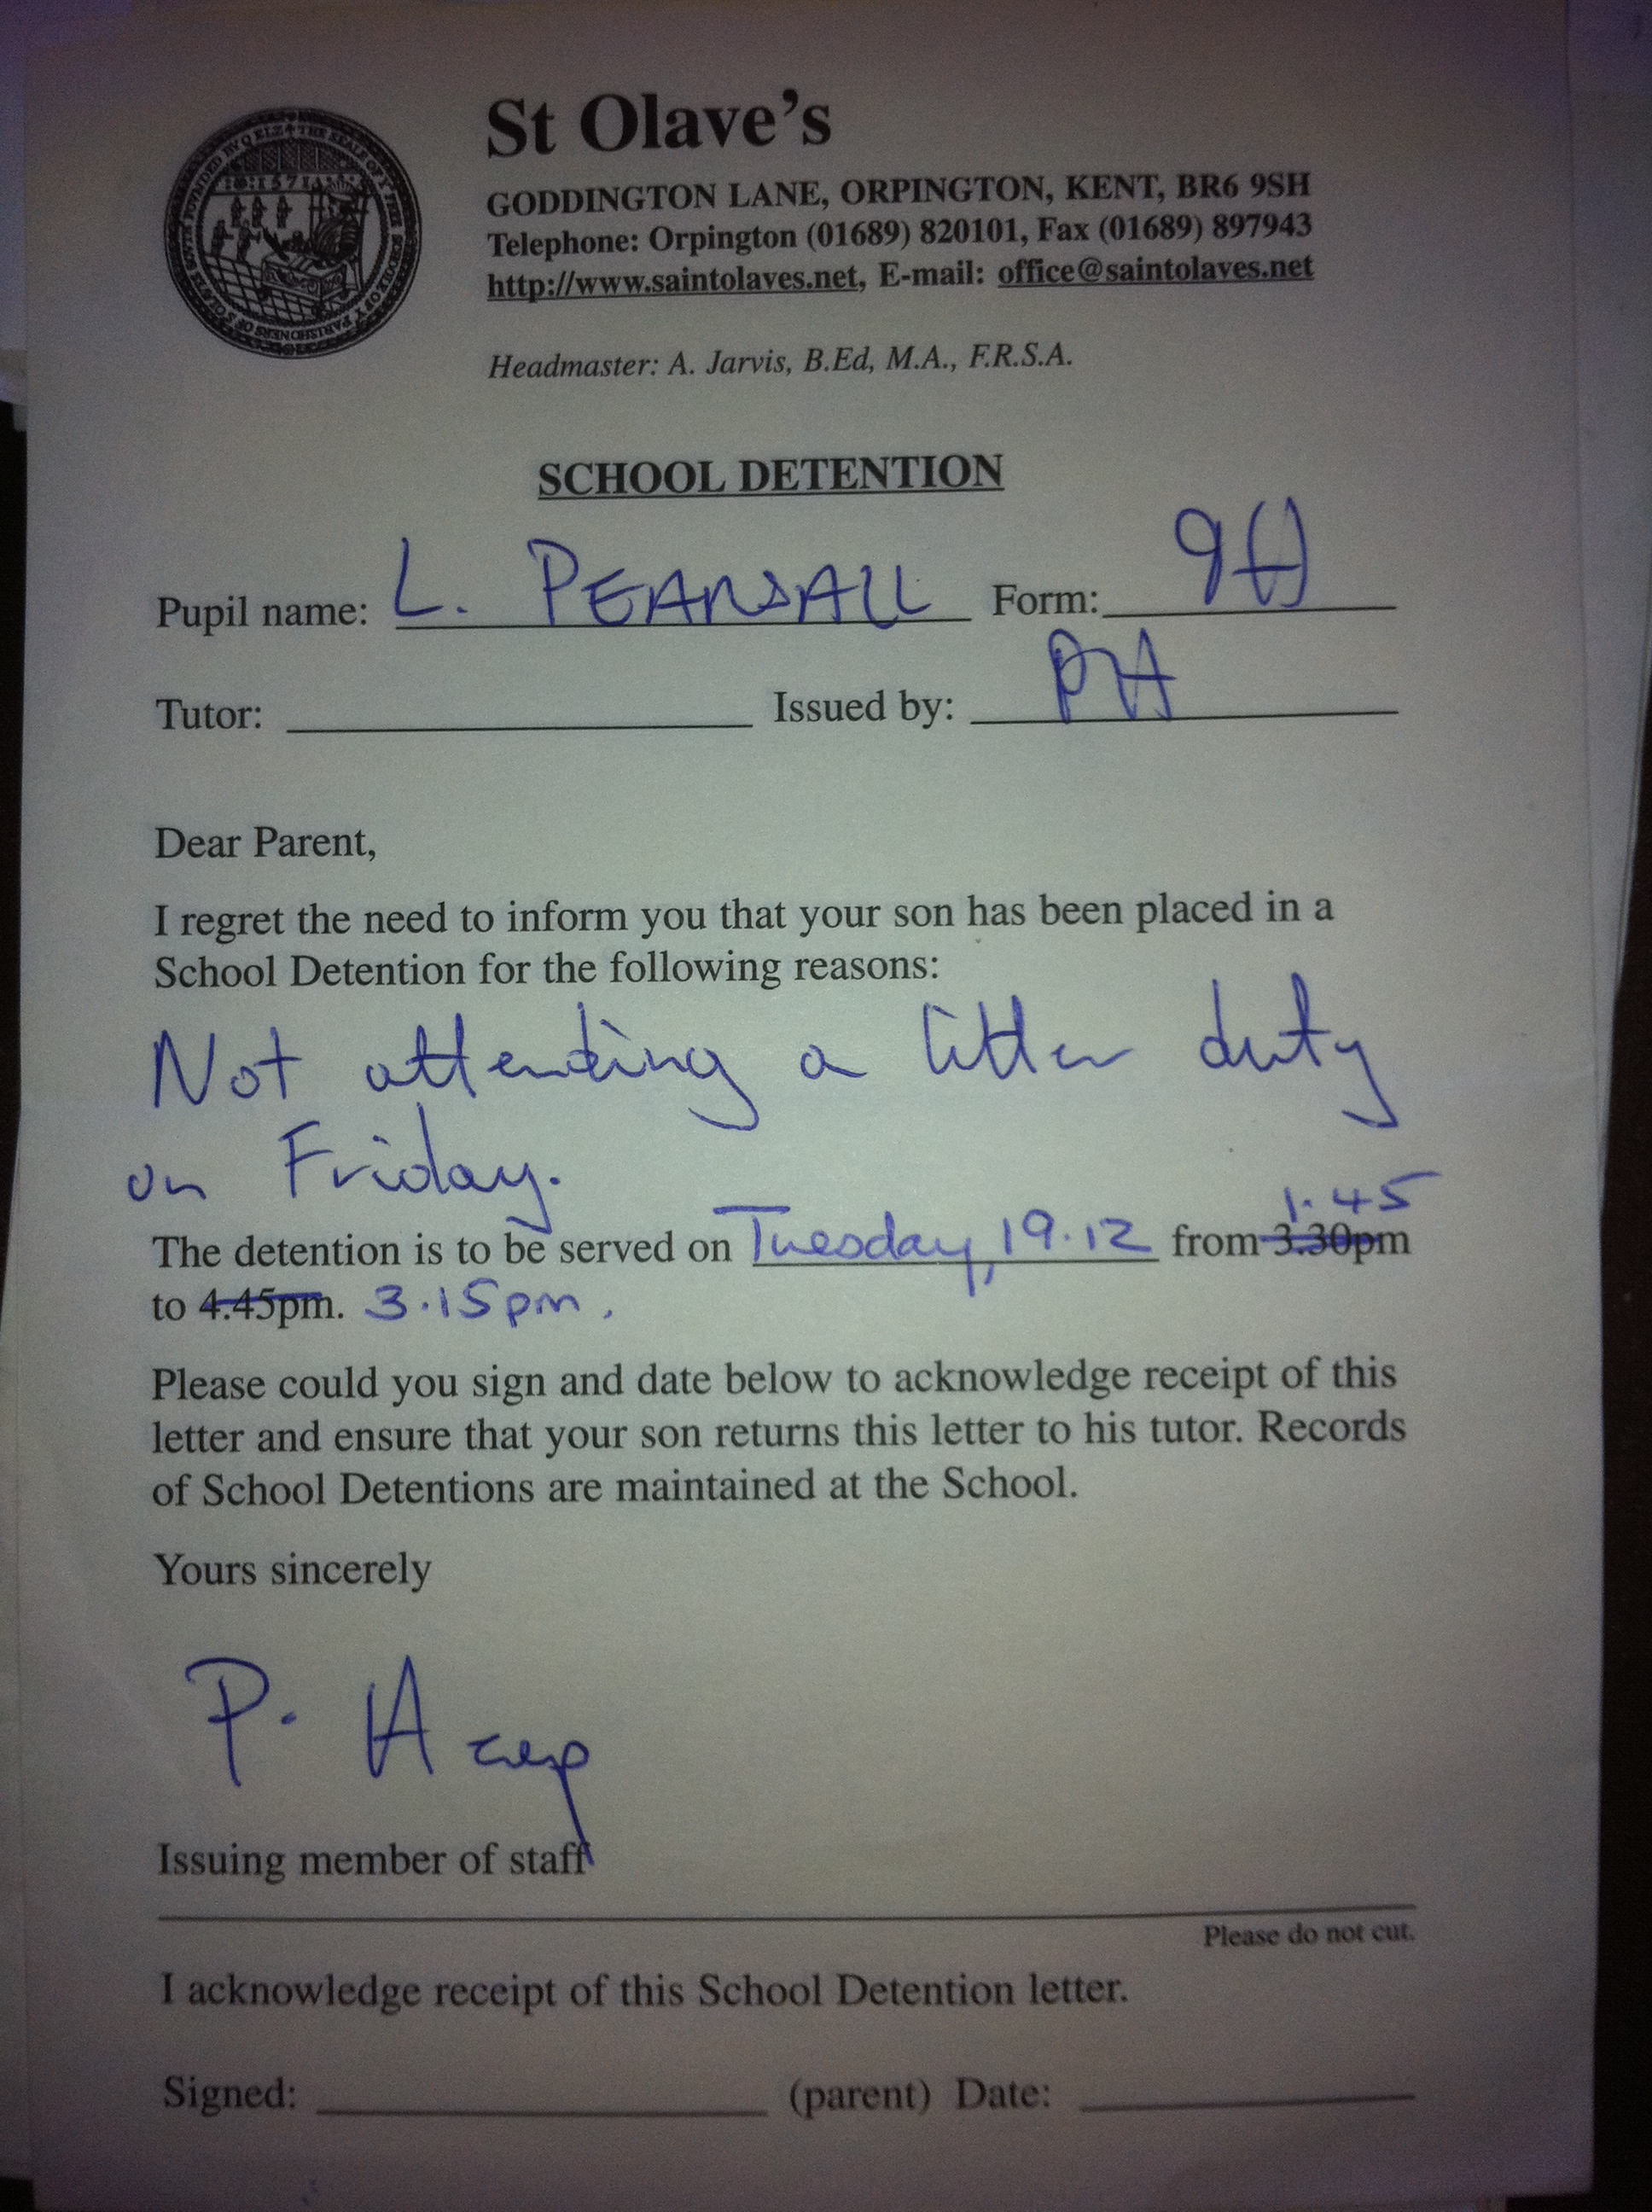 St Olave's
GODDINGTON LANE, ORPINGTON, KENT, BR6 9SH
Telephone: Orpington (01689) 820101, Fax (01689) 897943
http://www.saintolaves.net, E-mail: office@saintolaves.net
Headmaster: A. Jarvis, B.Ed, M.A., F.R.S.A.
SCHOOL DETENTION
Pupil name: L. PEARSALL Form: 9H
Tutor: Issued by: PH
Dear Parent,
I regret the need to inform you that your son has been placed in a
School Detention for the following reasons:
Not attending a litter duty
on Friday.
1.45
The detention is to be served on Tuesday, 19.12 from 3.30pm
to 4.45pm. 3.15pm.
Please could you sign and date below to acknowledge receipt of this
letter and ensure that your son returns this letter to his tutor. Records
of School Detentions are maintained at the School.
Yours sincerely
P.
Issuing member of staff
Please do not cut.
I acknowledge receipt of this School Detention letter.
Signed: (parent) Date: